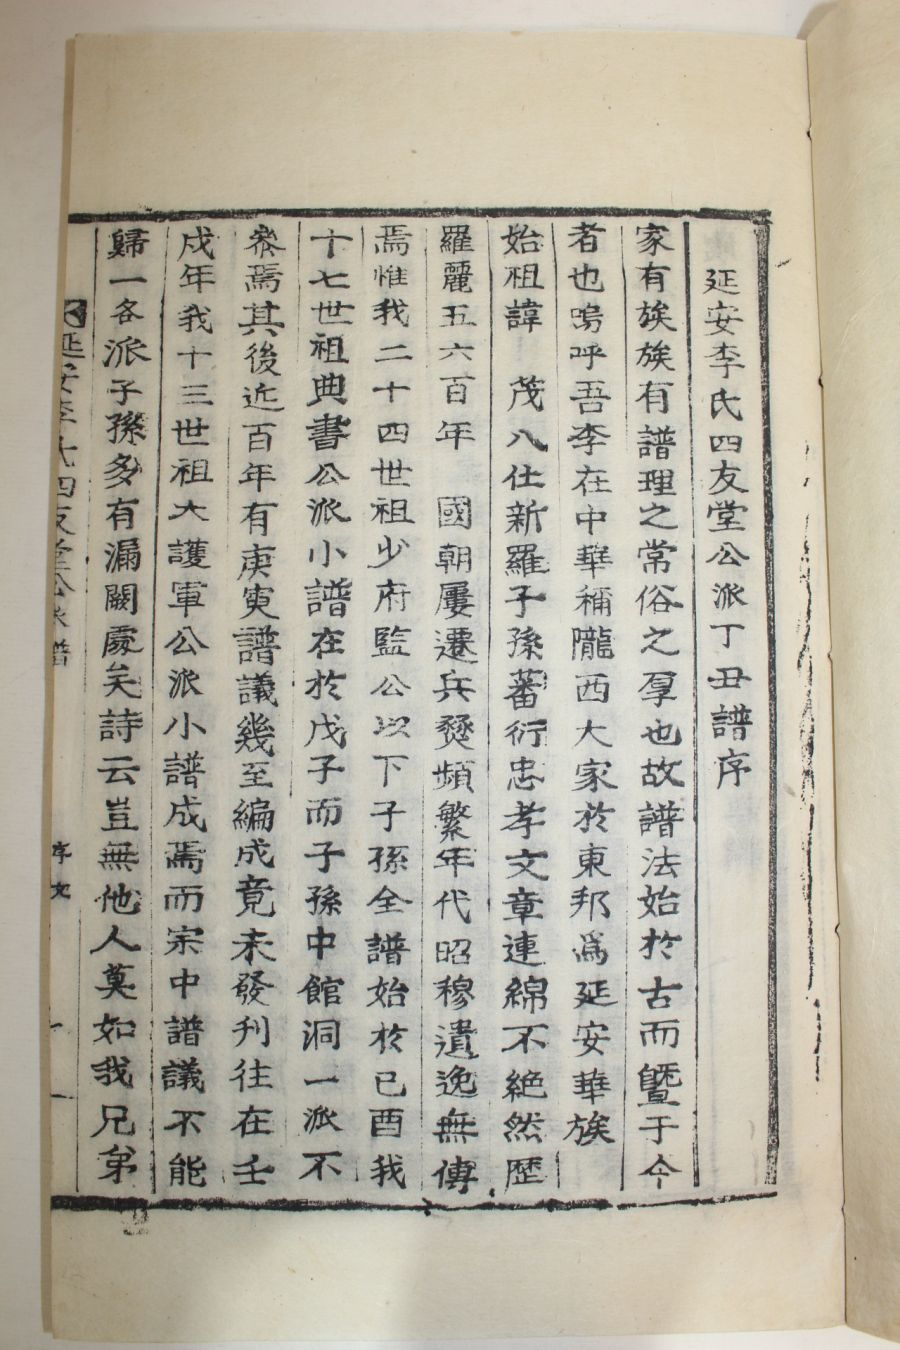 延安李氏四友堂公派丁丑譜序
家有族族有譜理之常俗之厚也故譜法始於古而曁于今
者也嗚呼吾李在中華稱隴西大家於東邦爲延安華族
始祖諱 茂八仕新羅子孫蕃衍忠孝文章連綿不絶然歷
羅麗五六百年 國朝屢遷兵燹頻繁年代昭穆遺逸無傳
焉惟我二十四世祖少府監公以下子孫全譜始於己酉我
十七世祖典書公派小譜在於戊子而子孫中館洞一派不
叅焉其後近百年有庚寅譜議幾至編成竟未發刊往在壬
戌年我十三世祖大護軍公派小譜成焉而宗中譜議不能
歸一各派子孫多有漏闕處矣詩云豈無他人莫如我兄弟
延安李氏四友堂公派譜
序文